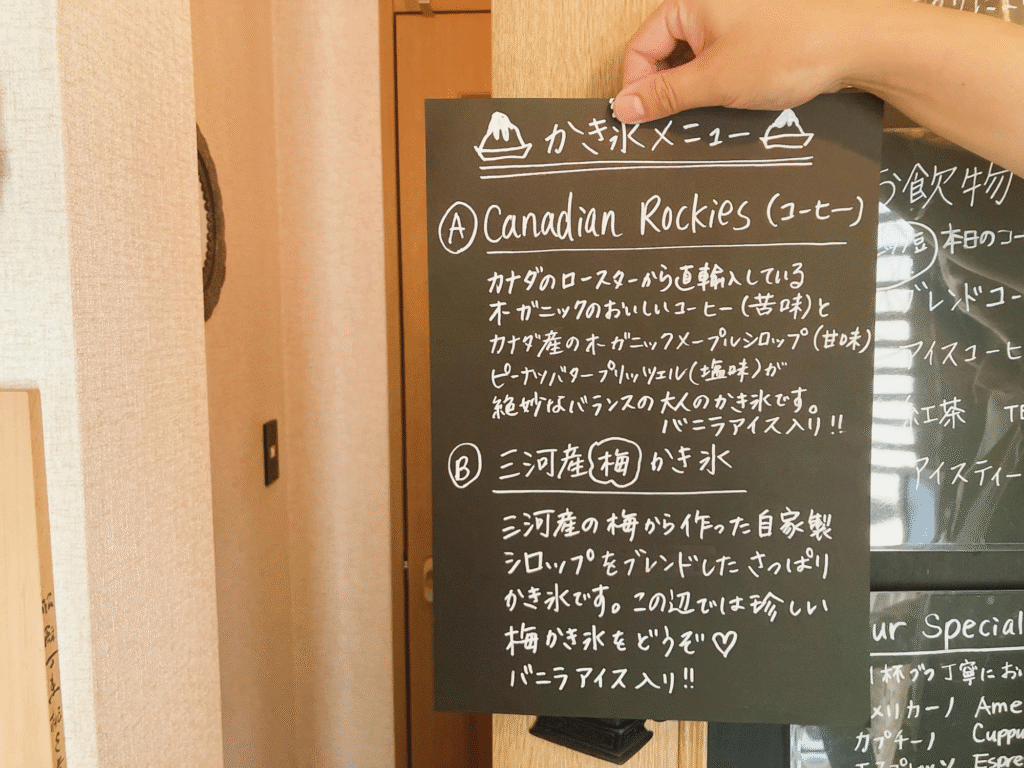 かき氷メニュー
Ⓐ Canadian Rockies (コーヒー)
カナダのロースターから直輸入している
オーガニックのおいしいコーヒー(苦味)と
カナダ産のオーガニックメープルシロップ(甘味)
ピーナッツバタープリッツェル(塩味)が
絶妙なバランスの大人のかき氷です。
バニラアイス入り!!
Ⓑ 三河産梅かき氷
三河産の梅から作った自家製
シロップをブレンドしたさっぱり
かき氷です。この辺では珍しい
梅かき氷をどうぞ♡
バニラアイス入り!!
お飲物
本日のコー
ブレンドコー
アイスコーヒ
紅茶 TE
アイスティー
ur Special
1杯づつ丁寧におい
メリカーノ Ame
カプチーノ Cuppu
エスプレッソ Espre